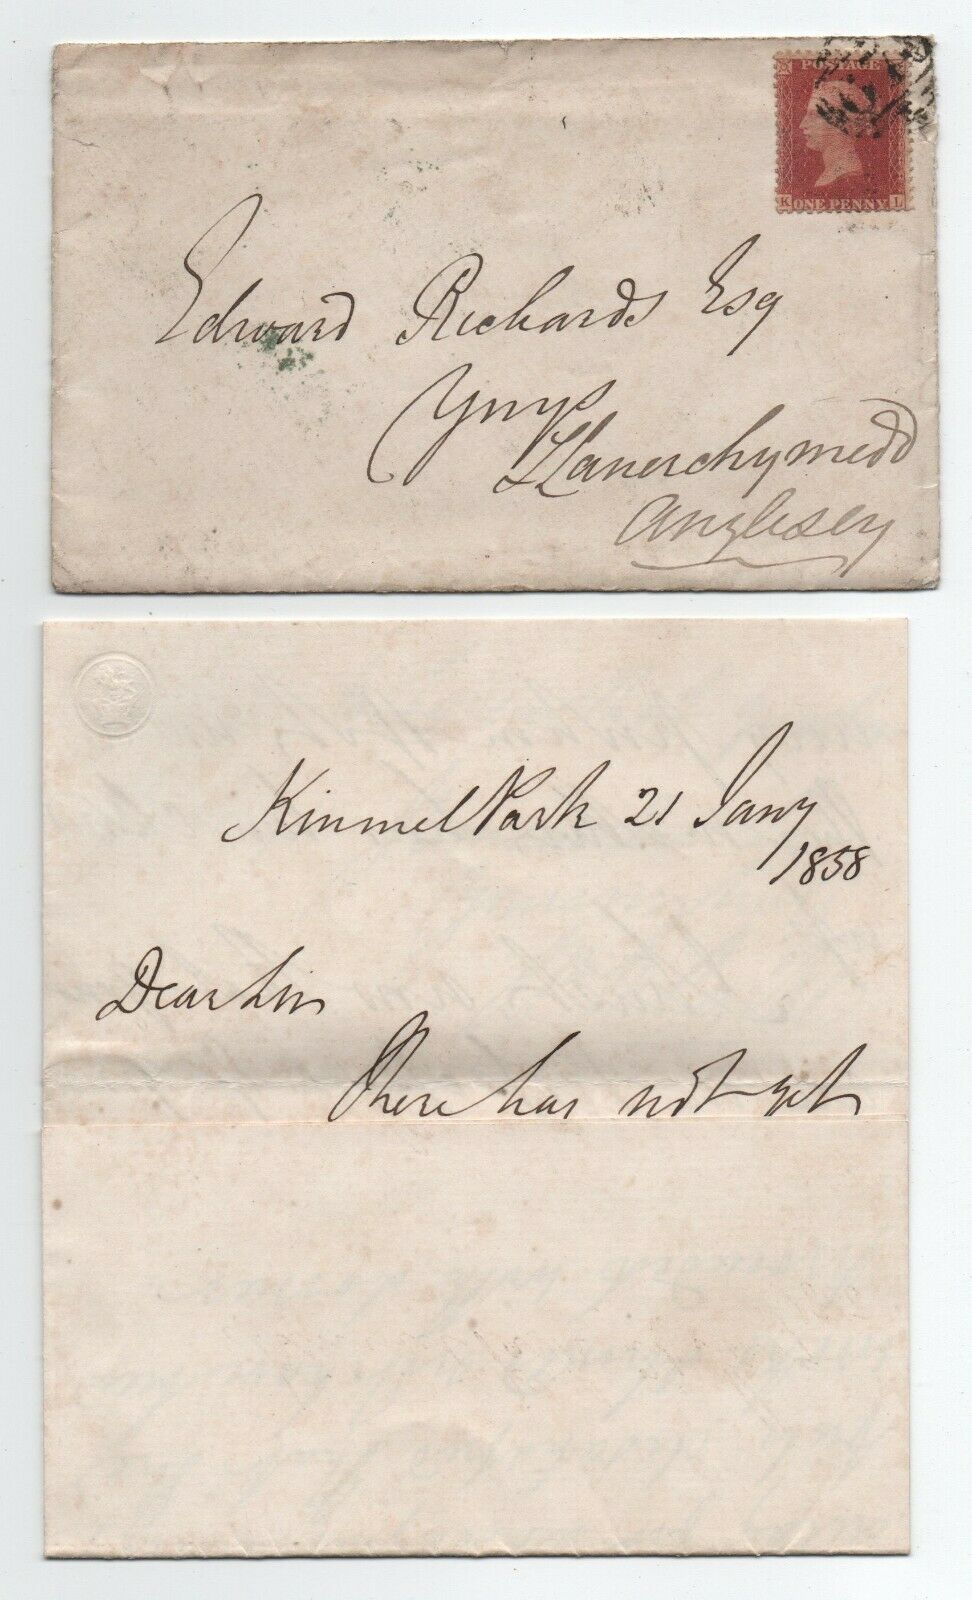 POSTAGE
K ONE PENNY L
Edward Richards Esq
Ynys
Llanerchymedd
Anglesey
Kinmel Park 21 Jany
1858
Dear Sir
There has not yet